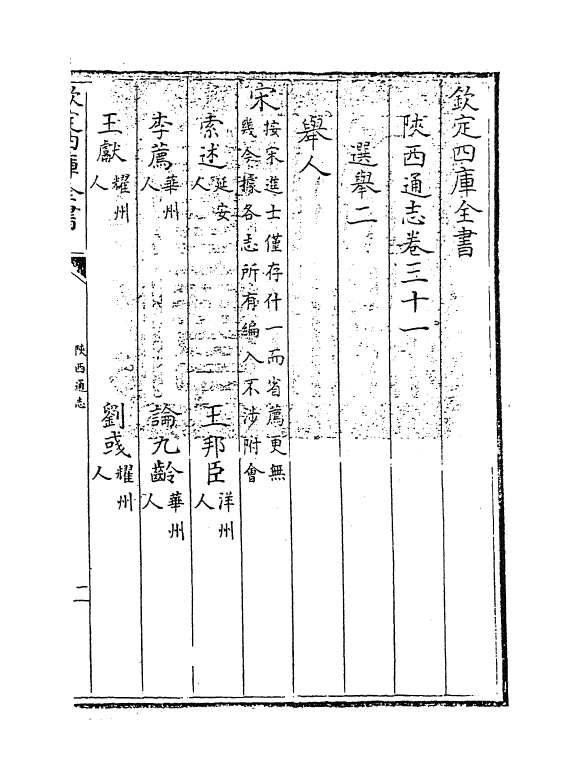 欽定四庫全書
陜西通志卷三十一
選舉二
舉人
宋按宋進士僅存什一而省薦更無
幾今據各志所有編入不涉附會
索述延安人 王邦臣洋州人
李薦華州人 論九齡華州人
王獻耀州人 劉彧耀州人
欽定四庫全書
陜西通志
一